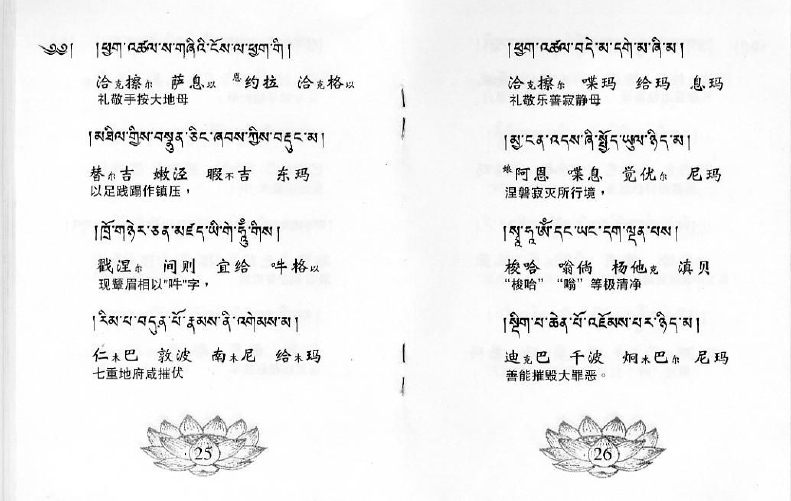 ༄༅། །ཕྱག་འཚལ་ས་གཞིའི་ངོས་ལ་ཕྱག་གི །
洽克擦尔 萨息以 恩约拉 洽克格以
礼敬手按大地母
།མཐིལ་གྱིས་བསྣུན་ཅིང་ཞབས་ཀྱིས་བརྡུང་མ།
替尔吉 嫩泾 暇不吉 东玛
以足践蹋作镇压，
།ཁྲོ་གཉེར་ཅན་མཛད་ཡི་གེ་ཧཱུྃ་གིས།
戳涅尔 间则 宜给 吽格以
现颦眉相以"吽"字，
།རིམ་པ་བདུན་པོ་རྣམས་ནི་འགེམས་མ།
仁木巴 敦波 南木尼 给木玛
七重地府咸摧伏
25
།ཕྱག་འཚལ་བདེ་མ་དགེ་མ་ཞི་མ།
洽克擦尔 喋玛 给玛 息玛
礼敬乐善寂静母
།མྱ་ངན་འདས་ཞི་སྤྱོད་ཡུལ་ཉིད་མ།
娘阿恩 喋息 觉优尔 尼玛
涅磐寂灭所行境，
།སྭཱ་ཧཱ་ཨོཾ་དང་ཡང་དག་ལྡན་པས།
梭哈 嗡倘 杨他克 滇贝
"梭哈" "嗡" 等极清净
།སྡིག་པ་ཆེན་པོ་འཇོམས་པར་ཉིད་མ།
迪克巴 千波 炯木巴尔 尼玛
善能摧毁大罪恶。
26